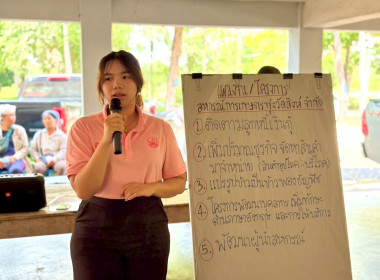 แผนงาน / โครงการ
สหกรณ์การเกษตรราษีไศล จำกัด
1. ติดตามลูกหนี้เงินกู้
2. เพิ่มปริมาณธุรกิจ จัดหาสินค้า
มาจำหน่าย (สินค้าอุปโภค - บริโภค)
3. แปรรูปข้าว
4. โครงการพัฒนาบุคลากร เพิ่มทักษะ
ด้านภาษาอังกฤษ และการให้บริการ
5. พัฒนาผู้นำสหกรณ์